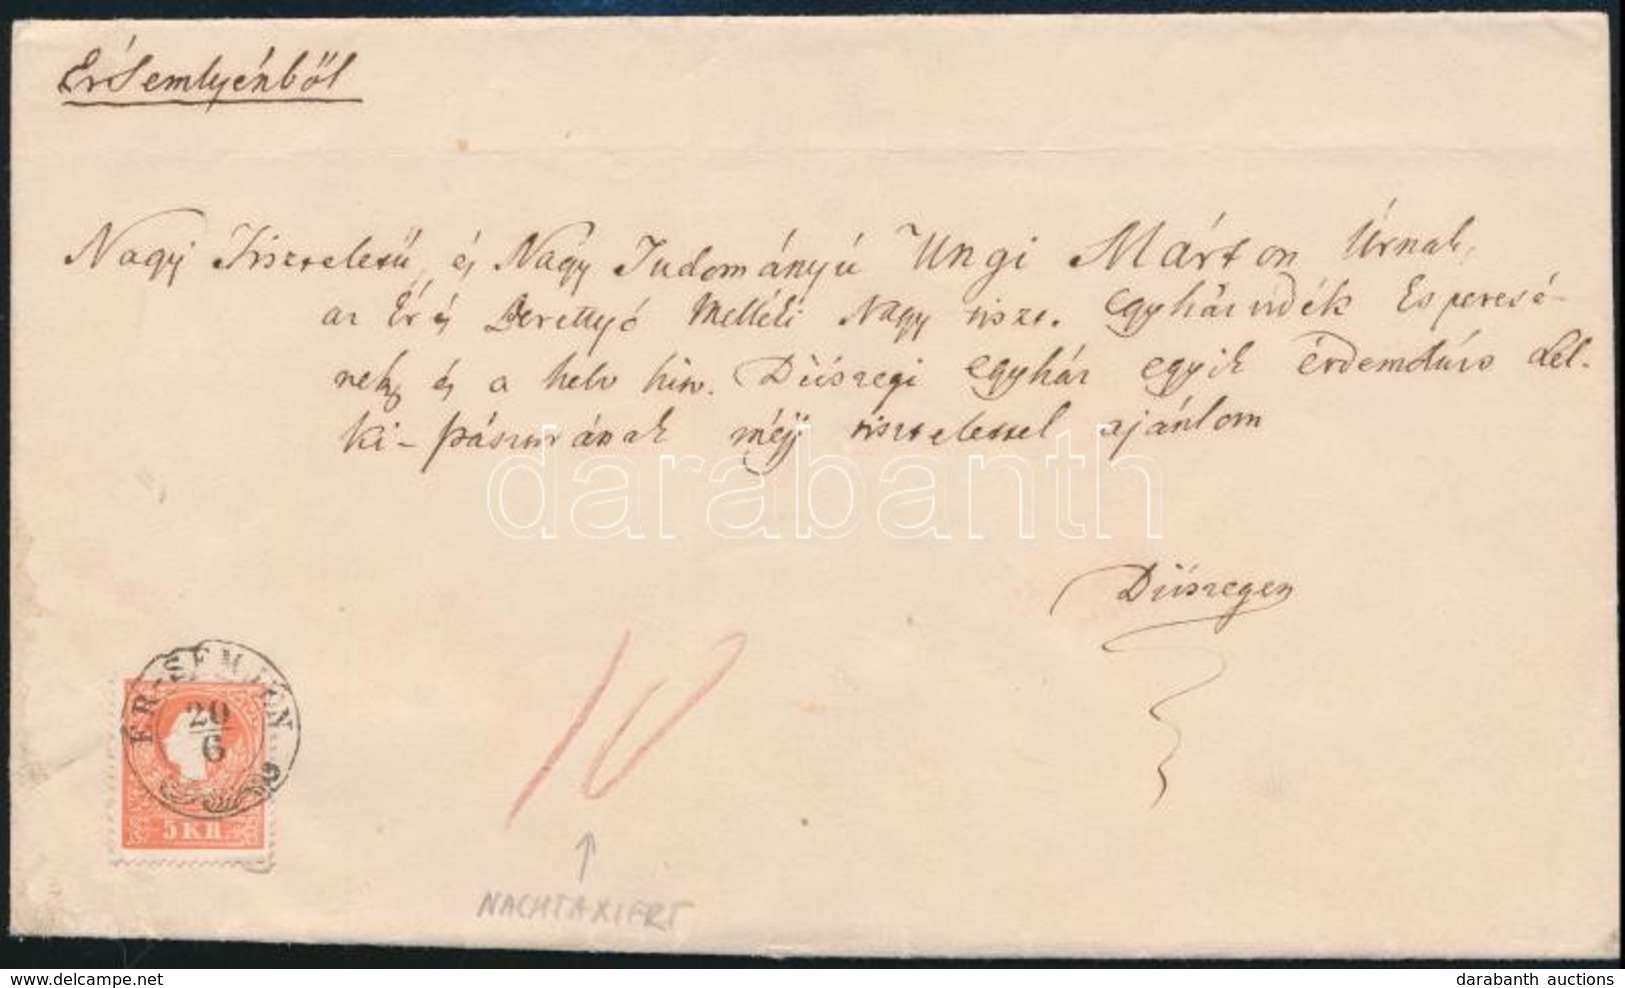 ÉrSemlyénből
Nagy Tiszteletű, és Nagy Tudományú Ungi Márton Úrnak,
az Ér és Berettyó Melléki Nagy tiszt. egyházvidék Esperesé-
nek és a helv hitv. Diószegi egyház egyik érdemdús Lel-
ki-pásztorának méjj tisztelettel ajánlom
darabanth
Diószegen
ÉR-SEMJÉN
20
6
5 KR.
10
NACHTAXIERT
www.delcampe.net
darabanth auctions